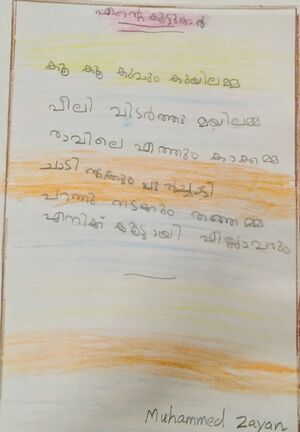 എന്റെ കൂട്ടുകാർ
കൂ കൂ കൂവും കുയിലമ്മ
പീലി വിടർത്തും മയിലമ്മ
രാവിലെ എത്തും കാക്കമ്മ
ചാടി നടക്കും
പറന്നു നടക്കും തത്തമ്മ
എനിക്ക് കൂട്ടായി എല്ലാവരും
Muhammed Zayan